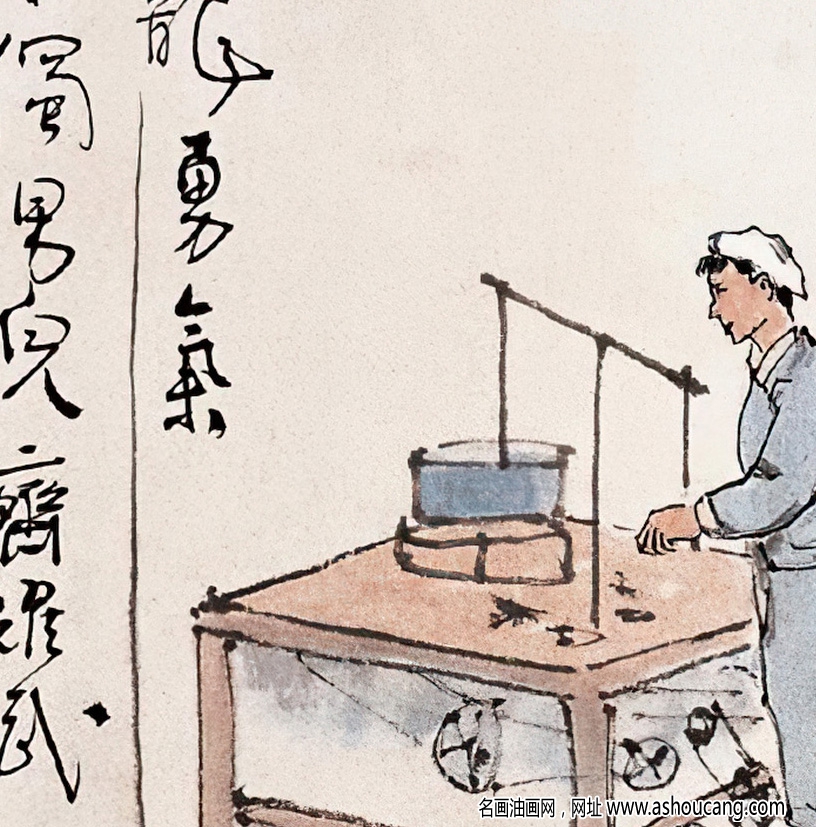 勇氣
獨男兒齊武
名画油画网，网址 www.ashoucang.com